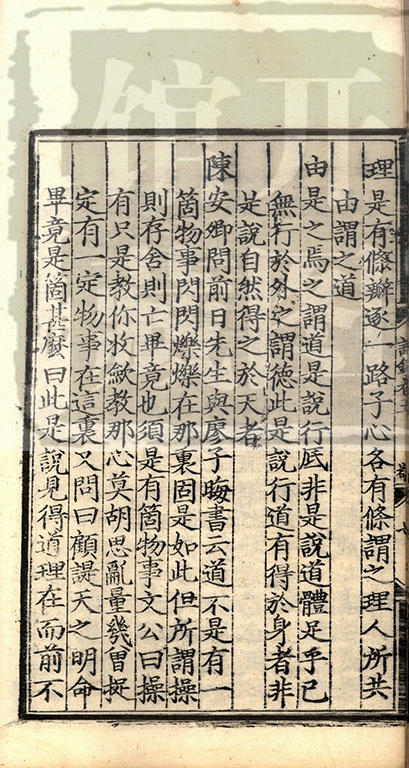 理是有條瓣逐一路子心各有條謂之理人所共
由謂之道
由是之焉之謂道是說行底非是說道體足乎己
無行於外之謂徳此是說行道有得於身者非
是說自然得之於天者
陳安卿問前日先生與廖子晦書云道不是有一
箇物事閃閃爍爍在那裏固是如此但所謂操
則存舍則亡畢竟也須是有箇物事文公曰操
有只是教你收歛教那心莫胡思亂量幾曾捉
定有一定物事在這裏又問曰顧諟天之明命
畢竟是箇甚麽曰此是說見得道理在而前不